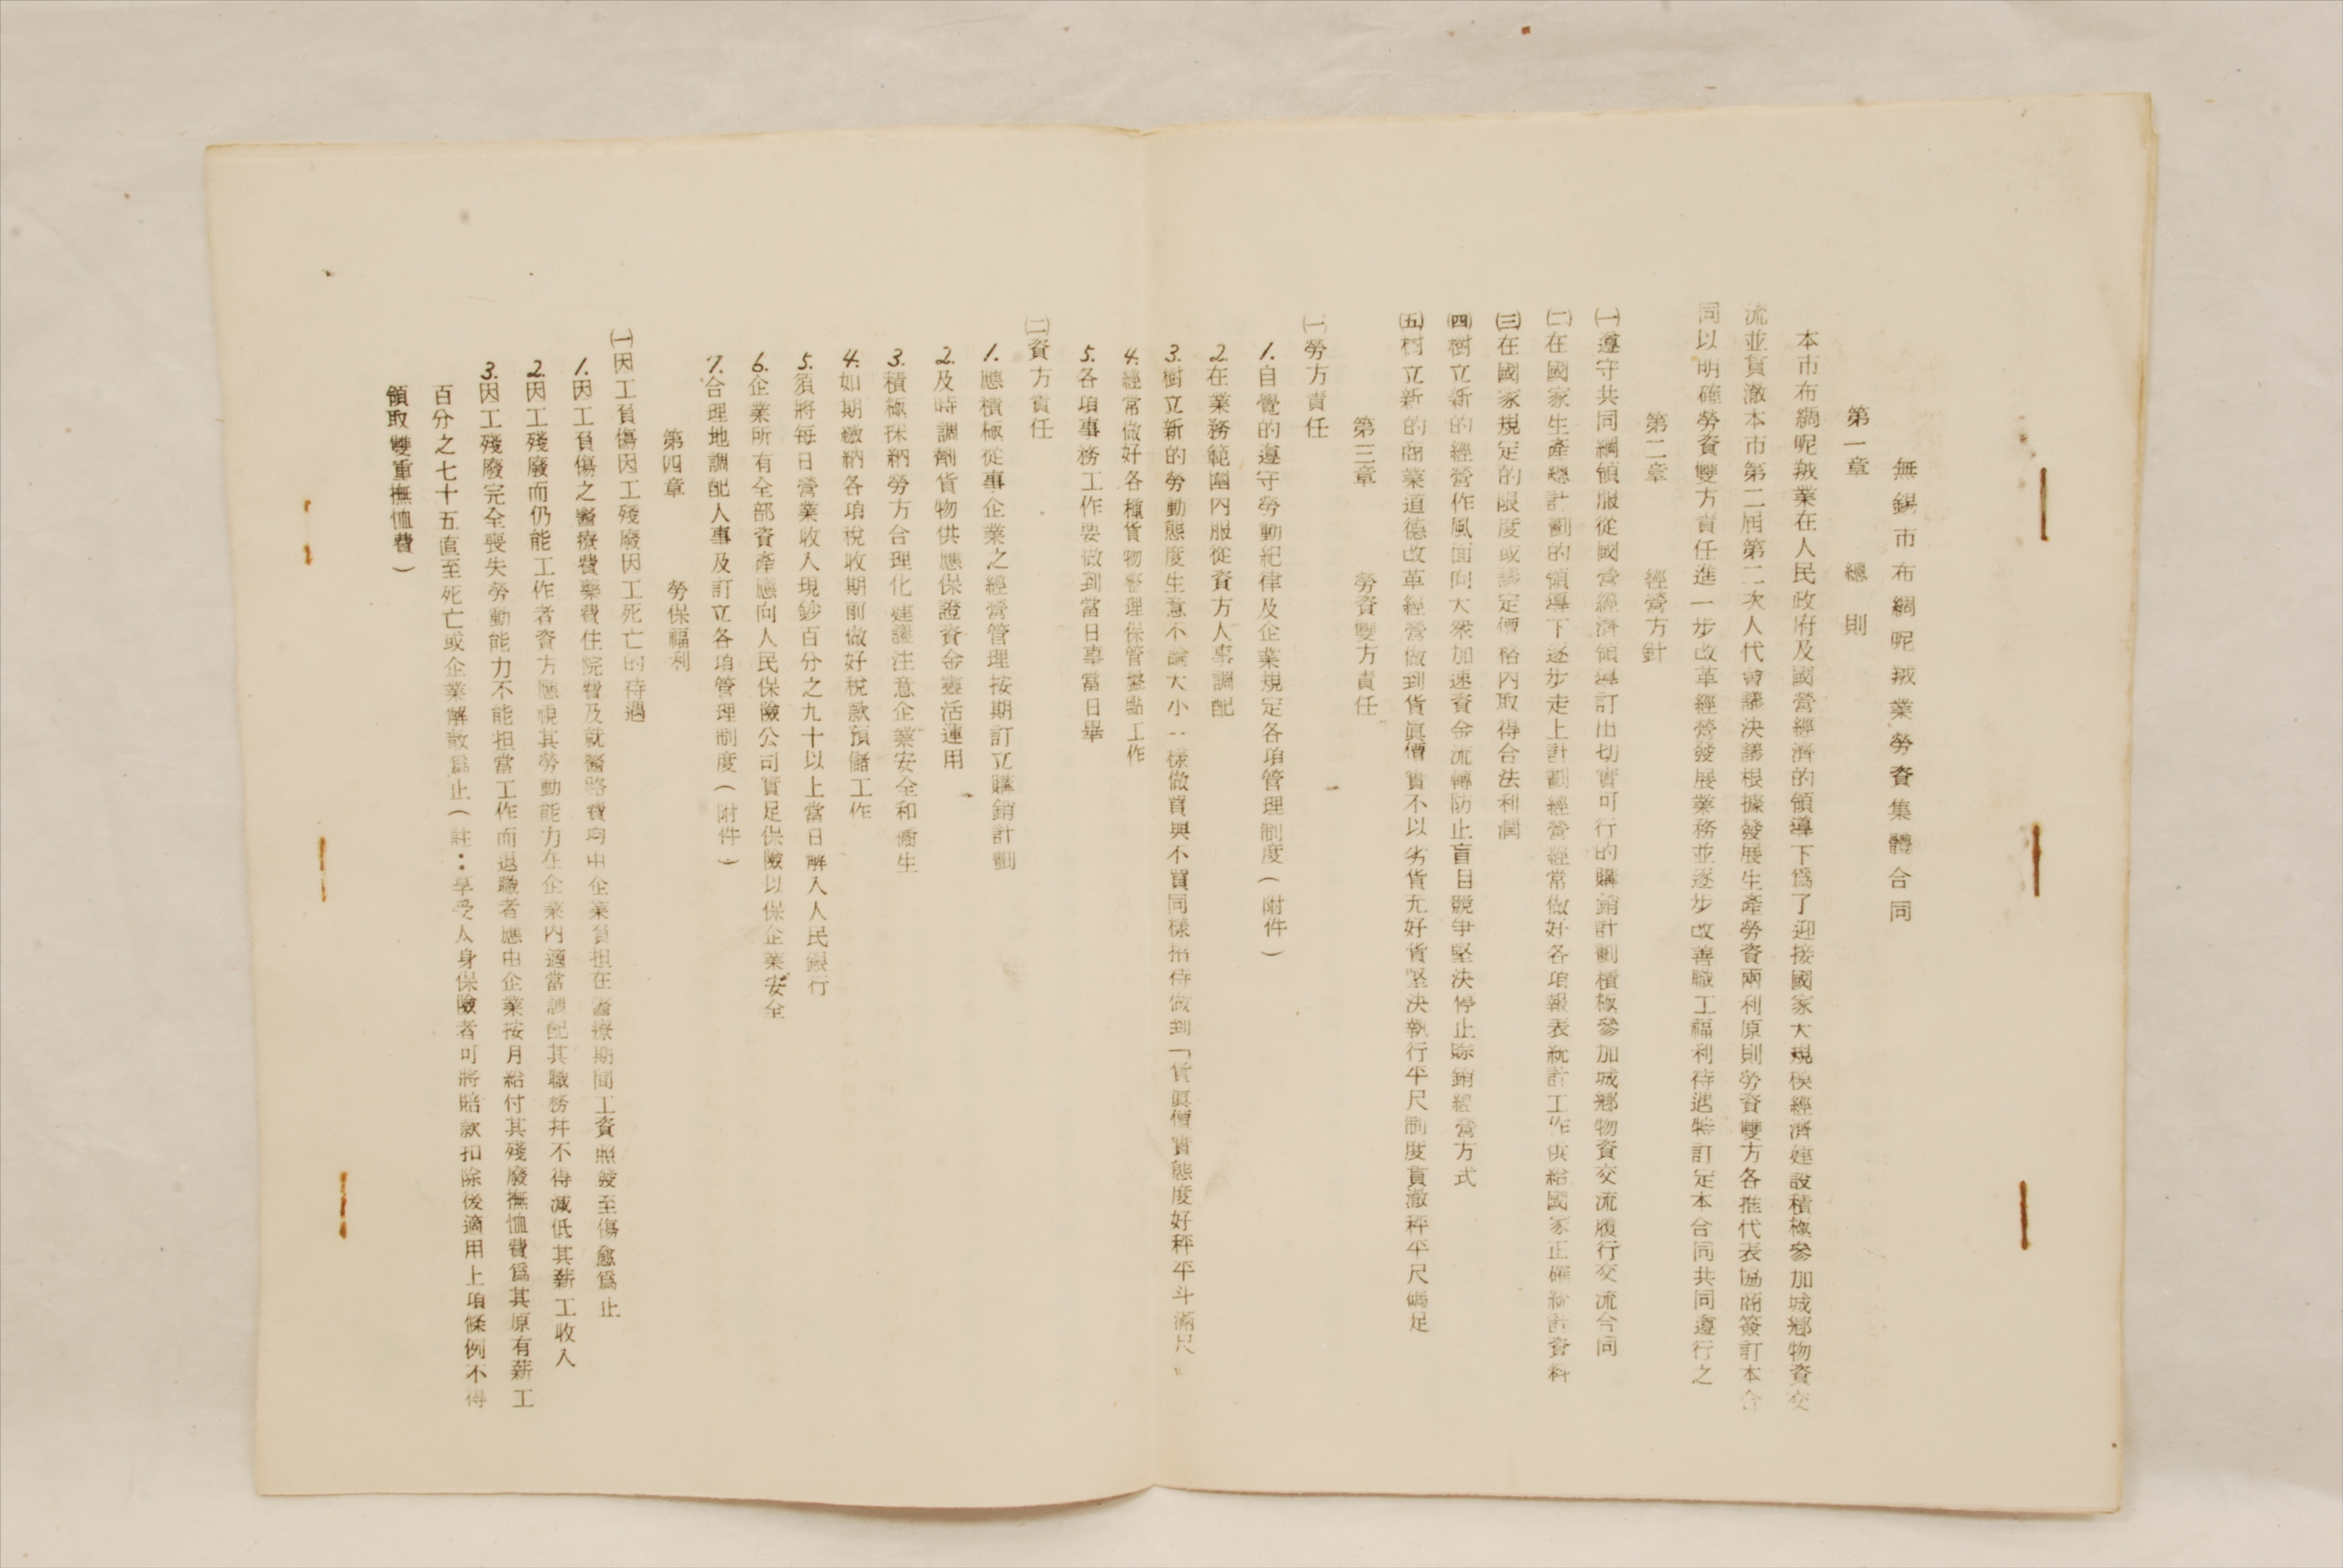 無錫市布綢呢絨業勞資集體合同
第一章 總則
本市布綢呢羢業在人民政府及國營經濟的領導下爲了迎接國家大規模經濟建設積極參加城鄉物資交
流並貫澈本市第二屆第二次人代會議決議根據發展生產勞資兩利原則勞資雙方各推代表協商簽訂本合
同以明確勞資雙方責任進一步改革經營發展業務並逐步改善職工福利待遇特訂定本合同共同遵行之
第二章 經營方針
㈠遵守共同綱領服從國營經濟領導訂出切實可行的購銷計劃積極參加城鄉物資交流履行交流合同
㈡在國家生產總計劃的領導下逐步走上計劃經營經常做好各項報表統計工作供給國家正確統計資料
㈢在國家規定的限度或議定價格內取得合法利潤
㈣樹立新的經營作風面向大衆加速資金流轉防止盲目競爭堅決停止賒銷經營方式
㈤村立新的商業道德改革經營做到貨眞價實不以劣貨充好貨堅決執行平尺制度貫澈秤平尺碼足
第三章 勞資雙方責任
㈠勞方責任
1.自覺的遵守勞動紀律及企業規定各項管理制度(附件)
2.在業務範圍內服從資方人事調配
3.樹立新的勞動態度生意不論大小一樣做買與不買同樣招待做到「貨眞價實態度好秤平斗滿尺〃
4.經常做好各種貨物整理保管盤點工作
5.各項事務工作要做到當日事當日畢
㈡資方責任
1.應積極從事企業之經營管理按期訂立購銷計劃
2.及時調劑貨物供應保證資金靈活運用
3.積極採納勞方合理化建議注意企業安全和衛生
4.如期繳納各項稅收期前做好稅款預儲工作
5.須將每日營業收入現鈔百分之九十以上當日解入人民銀行
6.企業所有全部資產應向人民保險公司實足保險以保企業安全
7.合理地調配人事及訂立各項管理制度(附件)
第四章 勞保福利
㈠因工負傷因工殘廢因工死亡的待遇
1.因工負傷之醫療費藥費住院費及就醫路費均由企業負担在醫療期間工資照發至傷愈爲止
2.因工殘廢而仍能工作者資方應視其勞動能力在企業內適當調配其職務幷不得減低其薪工收入
3.因工殘廢完全喪失勞動能力不能担當工作而退職者應由企業按月給付其殘廢撫恤費爲其原有薪工
百分之七十五直至死亡或企業解散爲止(註：享受人身保險者可將賠款扣除後適用上項條例不得
領取雙重撫恤費)